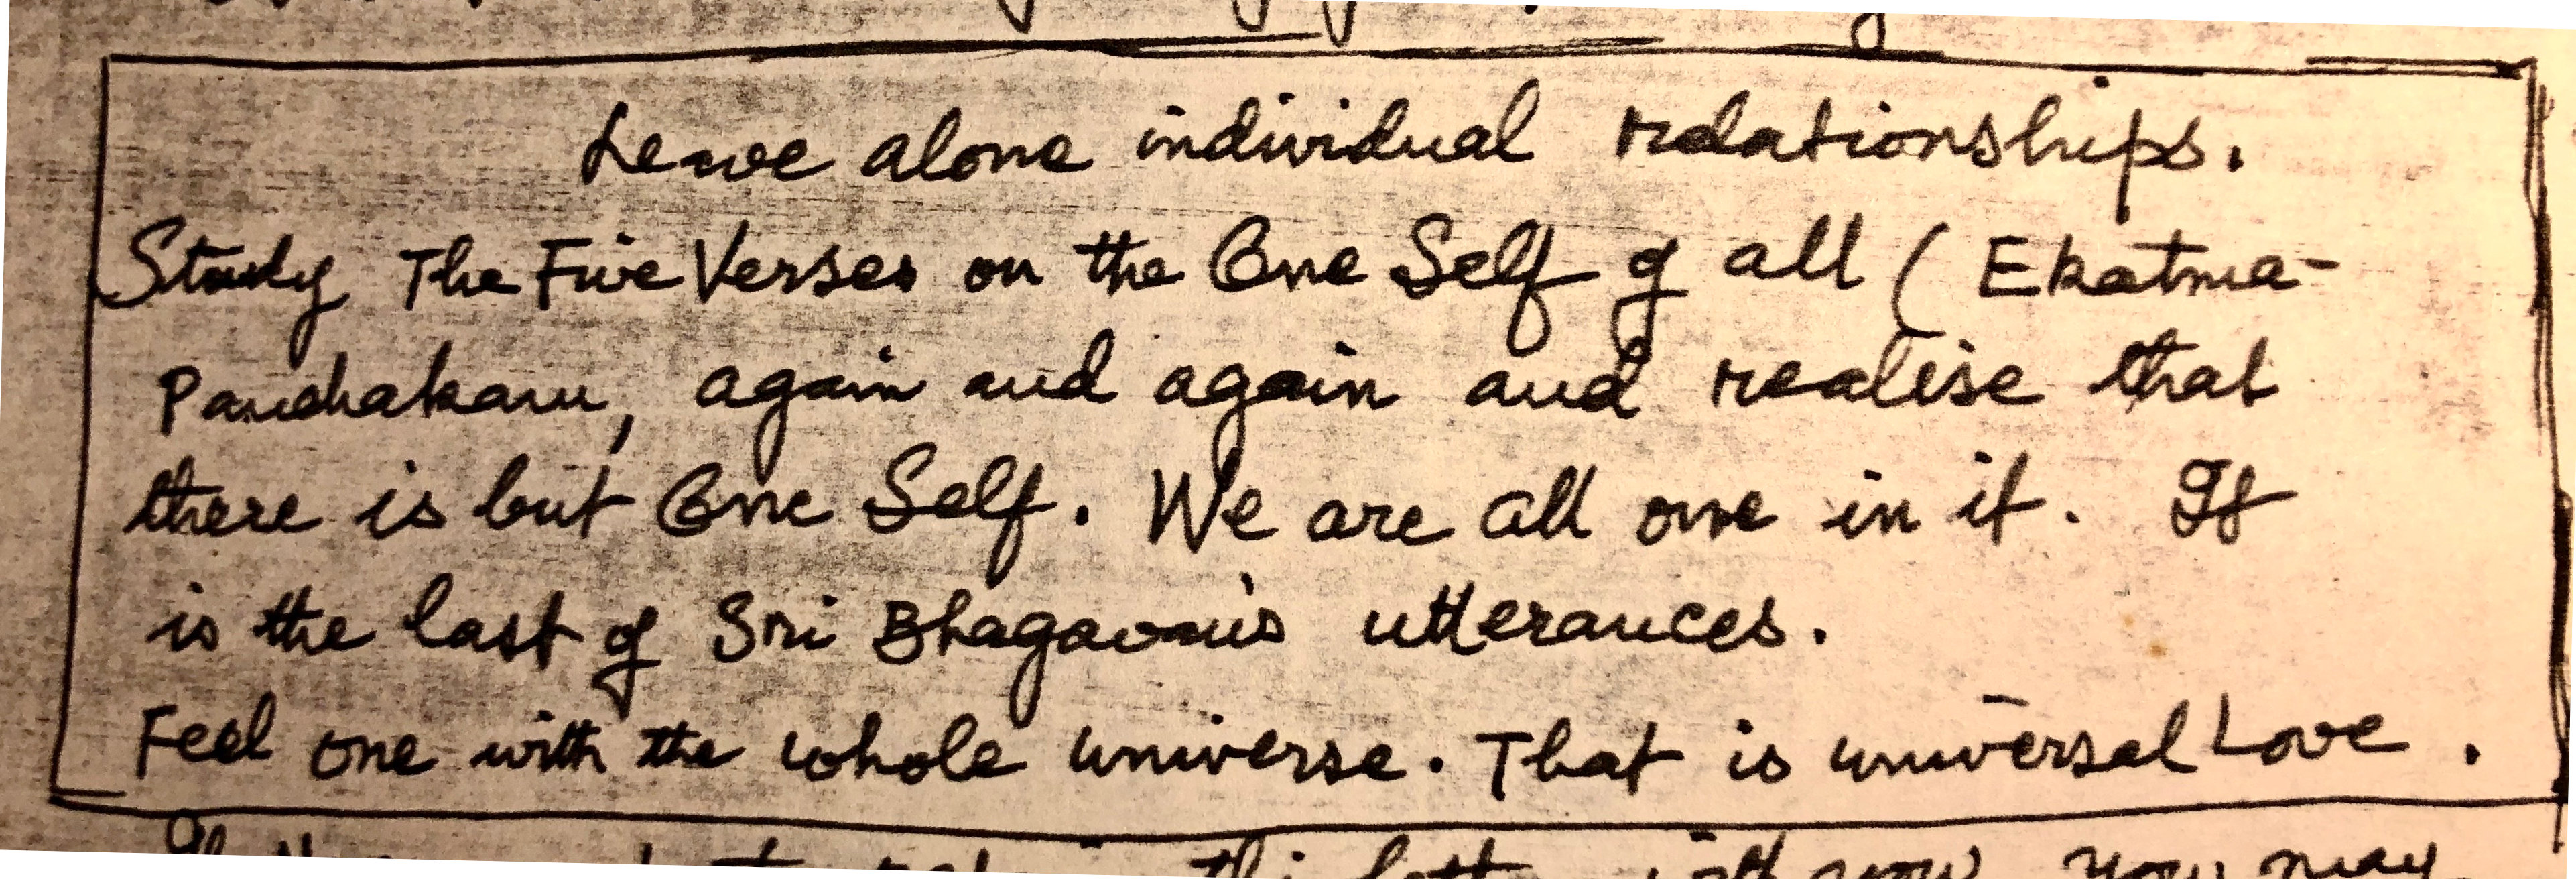 Leave alone individual relationships.
Study The Five Verses on the One Self of all (Ekatma-
Panchakam, again and again and realise that
there is but One Self. We are all one in it. It
is the last of Sri Bhagavan's utterances.
Feel one with the whole universe. That is universal Love.
you may